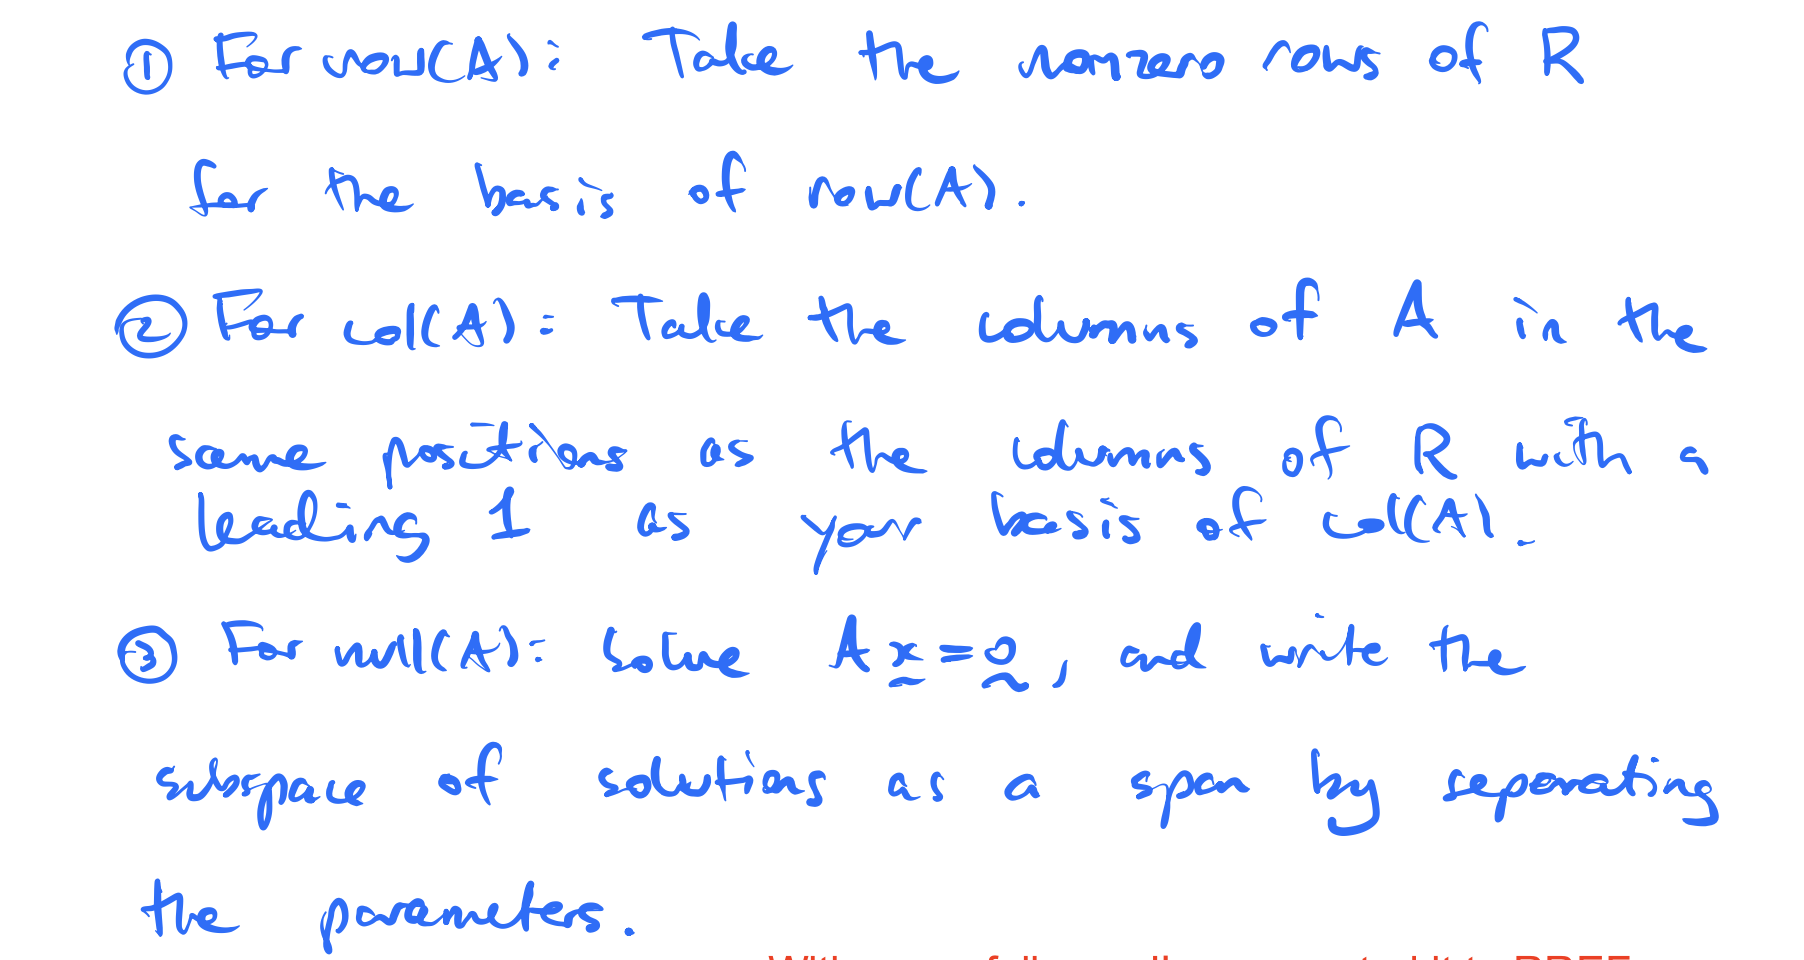 ① For row(A): Take the nonzero rows of R
for the basis of row(A).
② For col(A): Take the columns of A in the
same positions as the columns of R with a
leading 1 as your basis of col(A).
③ For null(A): Solve Ax=0, and write the
subspace of solutions as a span by separating
the parameters.